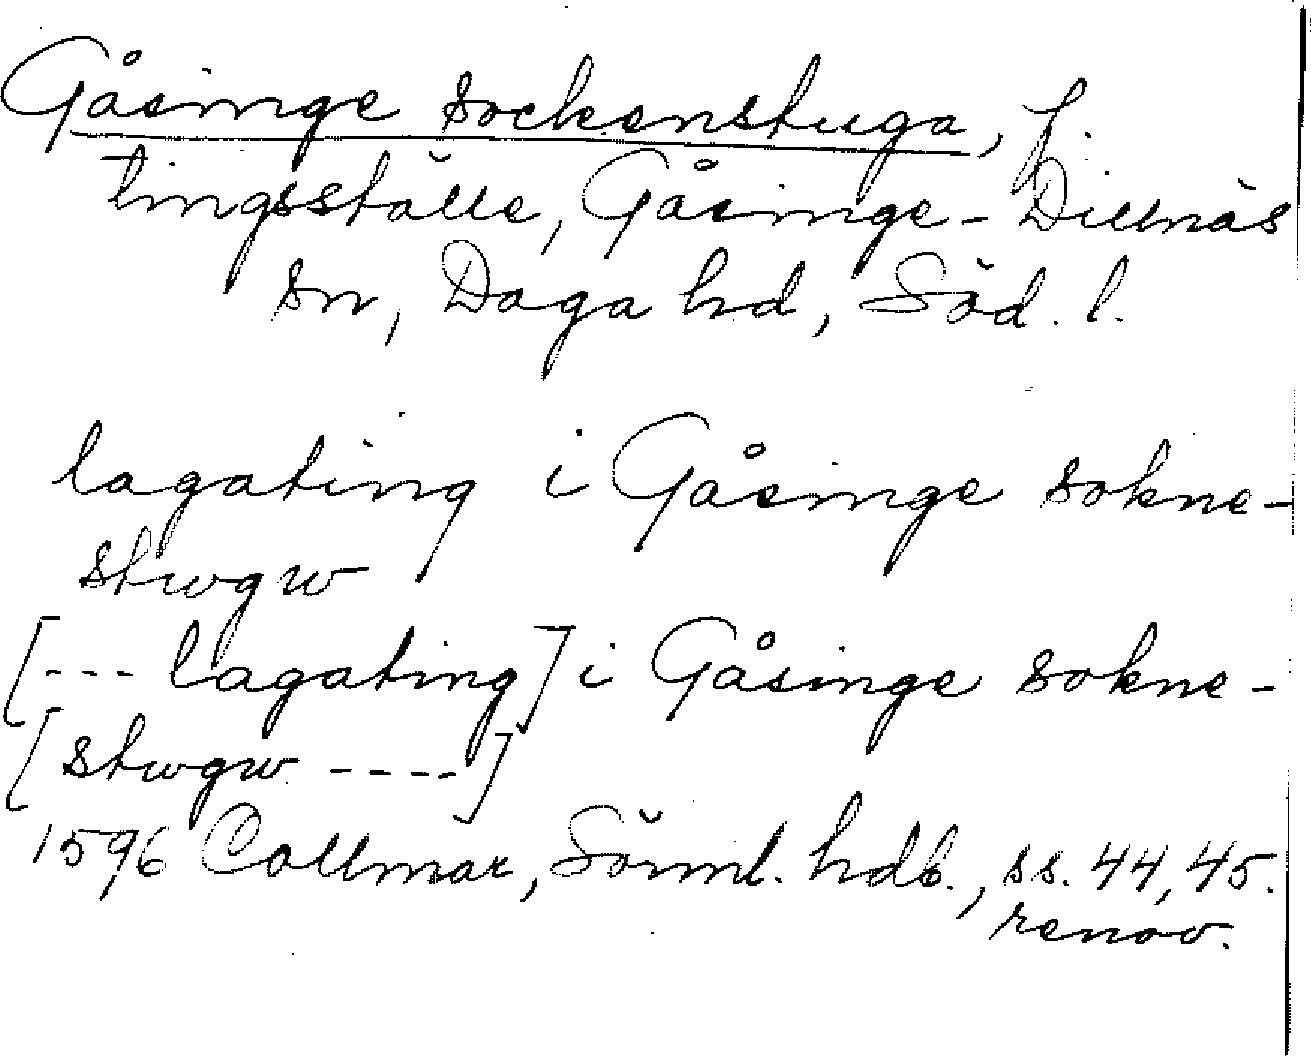 Gåsinge sockenstuga, f.
tingsställe, Gåsinge-Dillnäs
sn, Daga hd, Söd. l.
lagating i Gåsinge sokne-
stwgw
[--- lagating] i Gåsinge sokne-
[stwgw ----]
1596 Collmar, Sörml. hdb., ss. 44, 45.
renov.